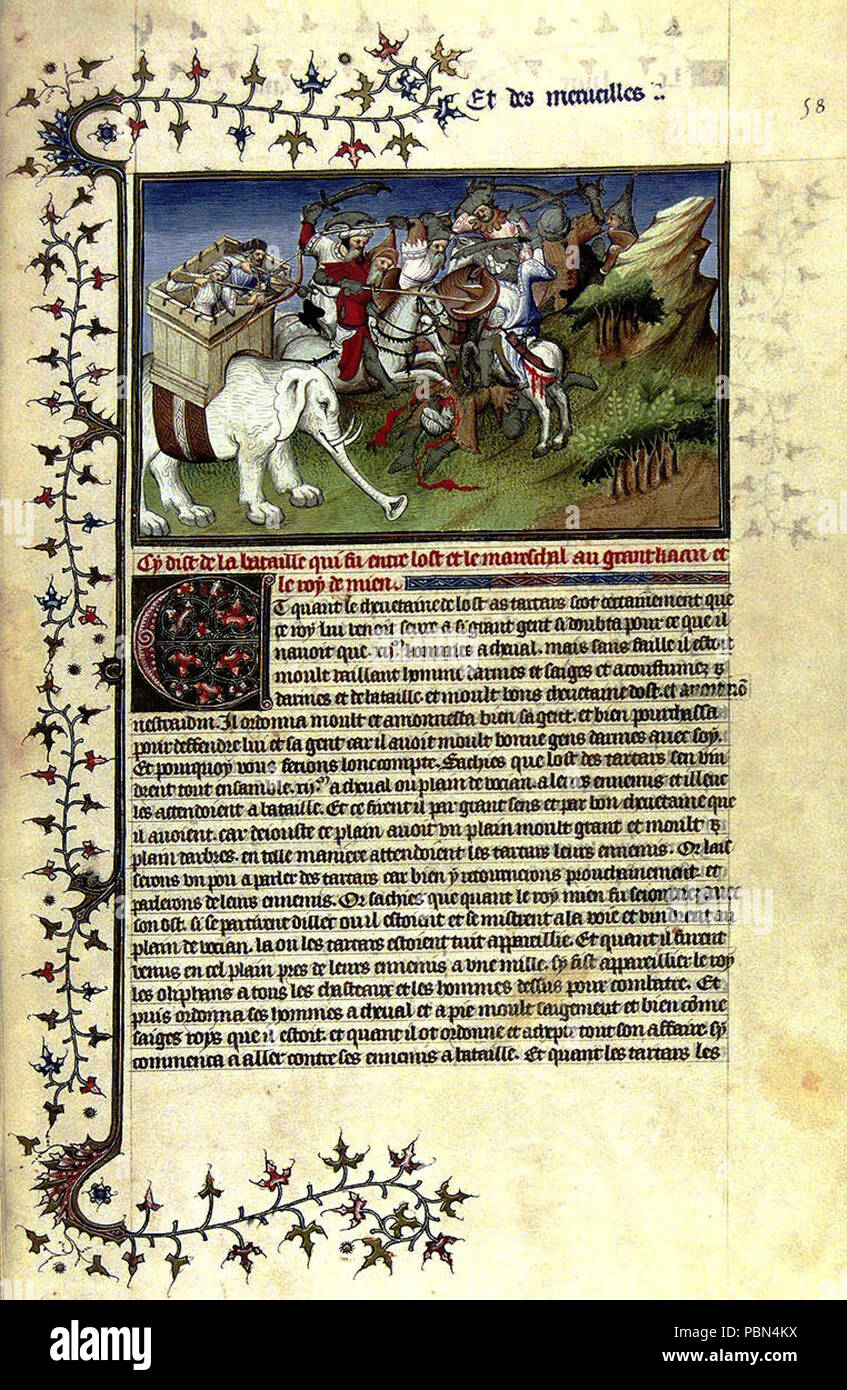 Et des merueilles :.
58
Cy dist de la bataille qui fu entre lost et le mareschal au grant kaan et
le roy de mien.
Et quant le cheuetaine de lost as tartars scot certainement que
ce roy lui venoit seure a si grant gent si doubta pour ce que il
nauoit que .xij.ᵐ hommes a cheual. mais sans faille il estoit
moult vaillant homme darmes et saiges et acoustumez
darmes et de bataille. et moult bons cheuetaine dost. et auoit nō
nestraidin. Il ordonna moult et amonnesta bien sa gent. et bien pourchassa
pour deffendre lui et sa gent car il auoit moult bonne gens darmes auec soy.
Et pourquoy vous ferons lonc compte. Sachies que lost des tartars sen vin
drent tout ensamble .xij.ᵐ a cheual ou plain de vocian. a leurs ennemis et illeuc
les attendoient a bataille. Et ce firent il par grant sens et par bon cheuetaine que
il auoient. car deiouste ce plain auoit vn plain moult grant et moult
plain darbres. en telle maniere attendoient les tartars leurs ennemis. Or lais
serons vn pou a parler des tartars car bien y retournerons prouchainement. et
parlerons de leurs ennemis. Or sachies que quant le roy mien fu seiournez auec
son ost. si se partirent diller ou il estoient et se mistrent a la voie et vindrent au
plain de vocian. la ou les tartars estoient tuit appareillie. Et quant il furent
venus en cel plain pres de leurs ennemis a vne mille. sy fist appareillier le roy
les oliphans a tous les chasteaux et les hommes dessus pour combatre. Et
puis ordonna ses hommes a cheual et a pie moult saigement et bien cōme
saiges roys que il estoit. et quant il ot ordonne et achepte tout son affaire sy
commenca a aller contre ses ennemis a bataille. Et quant les tartars les
alamy
Image ID: PBN4KX
www.alamy.com